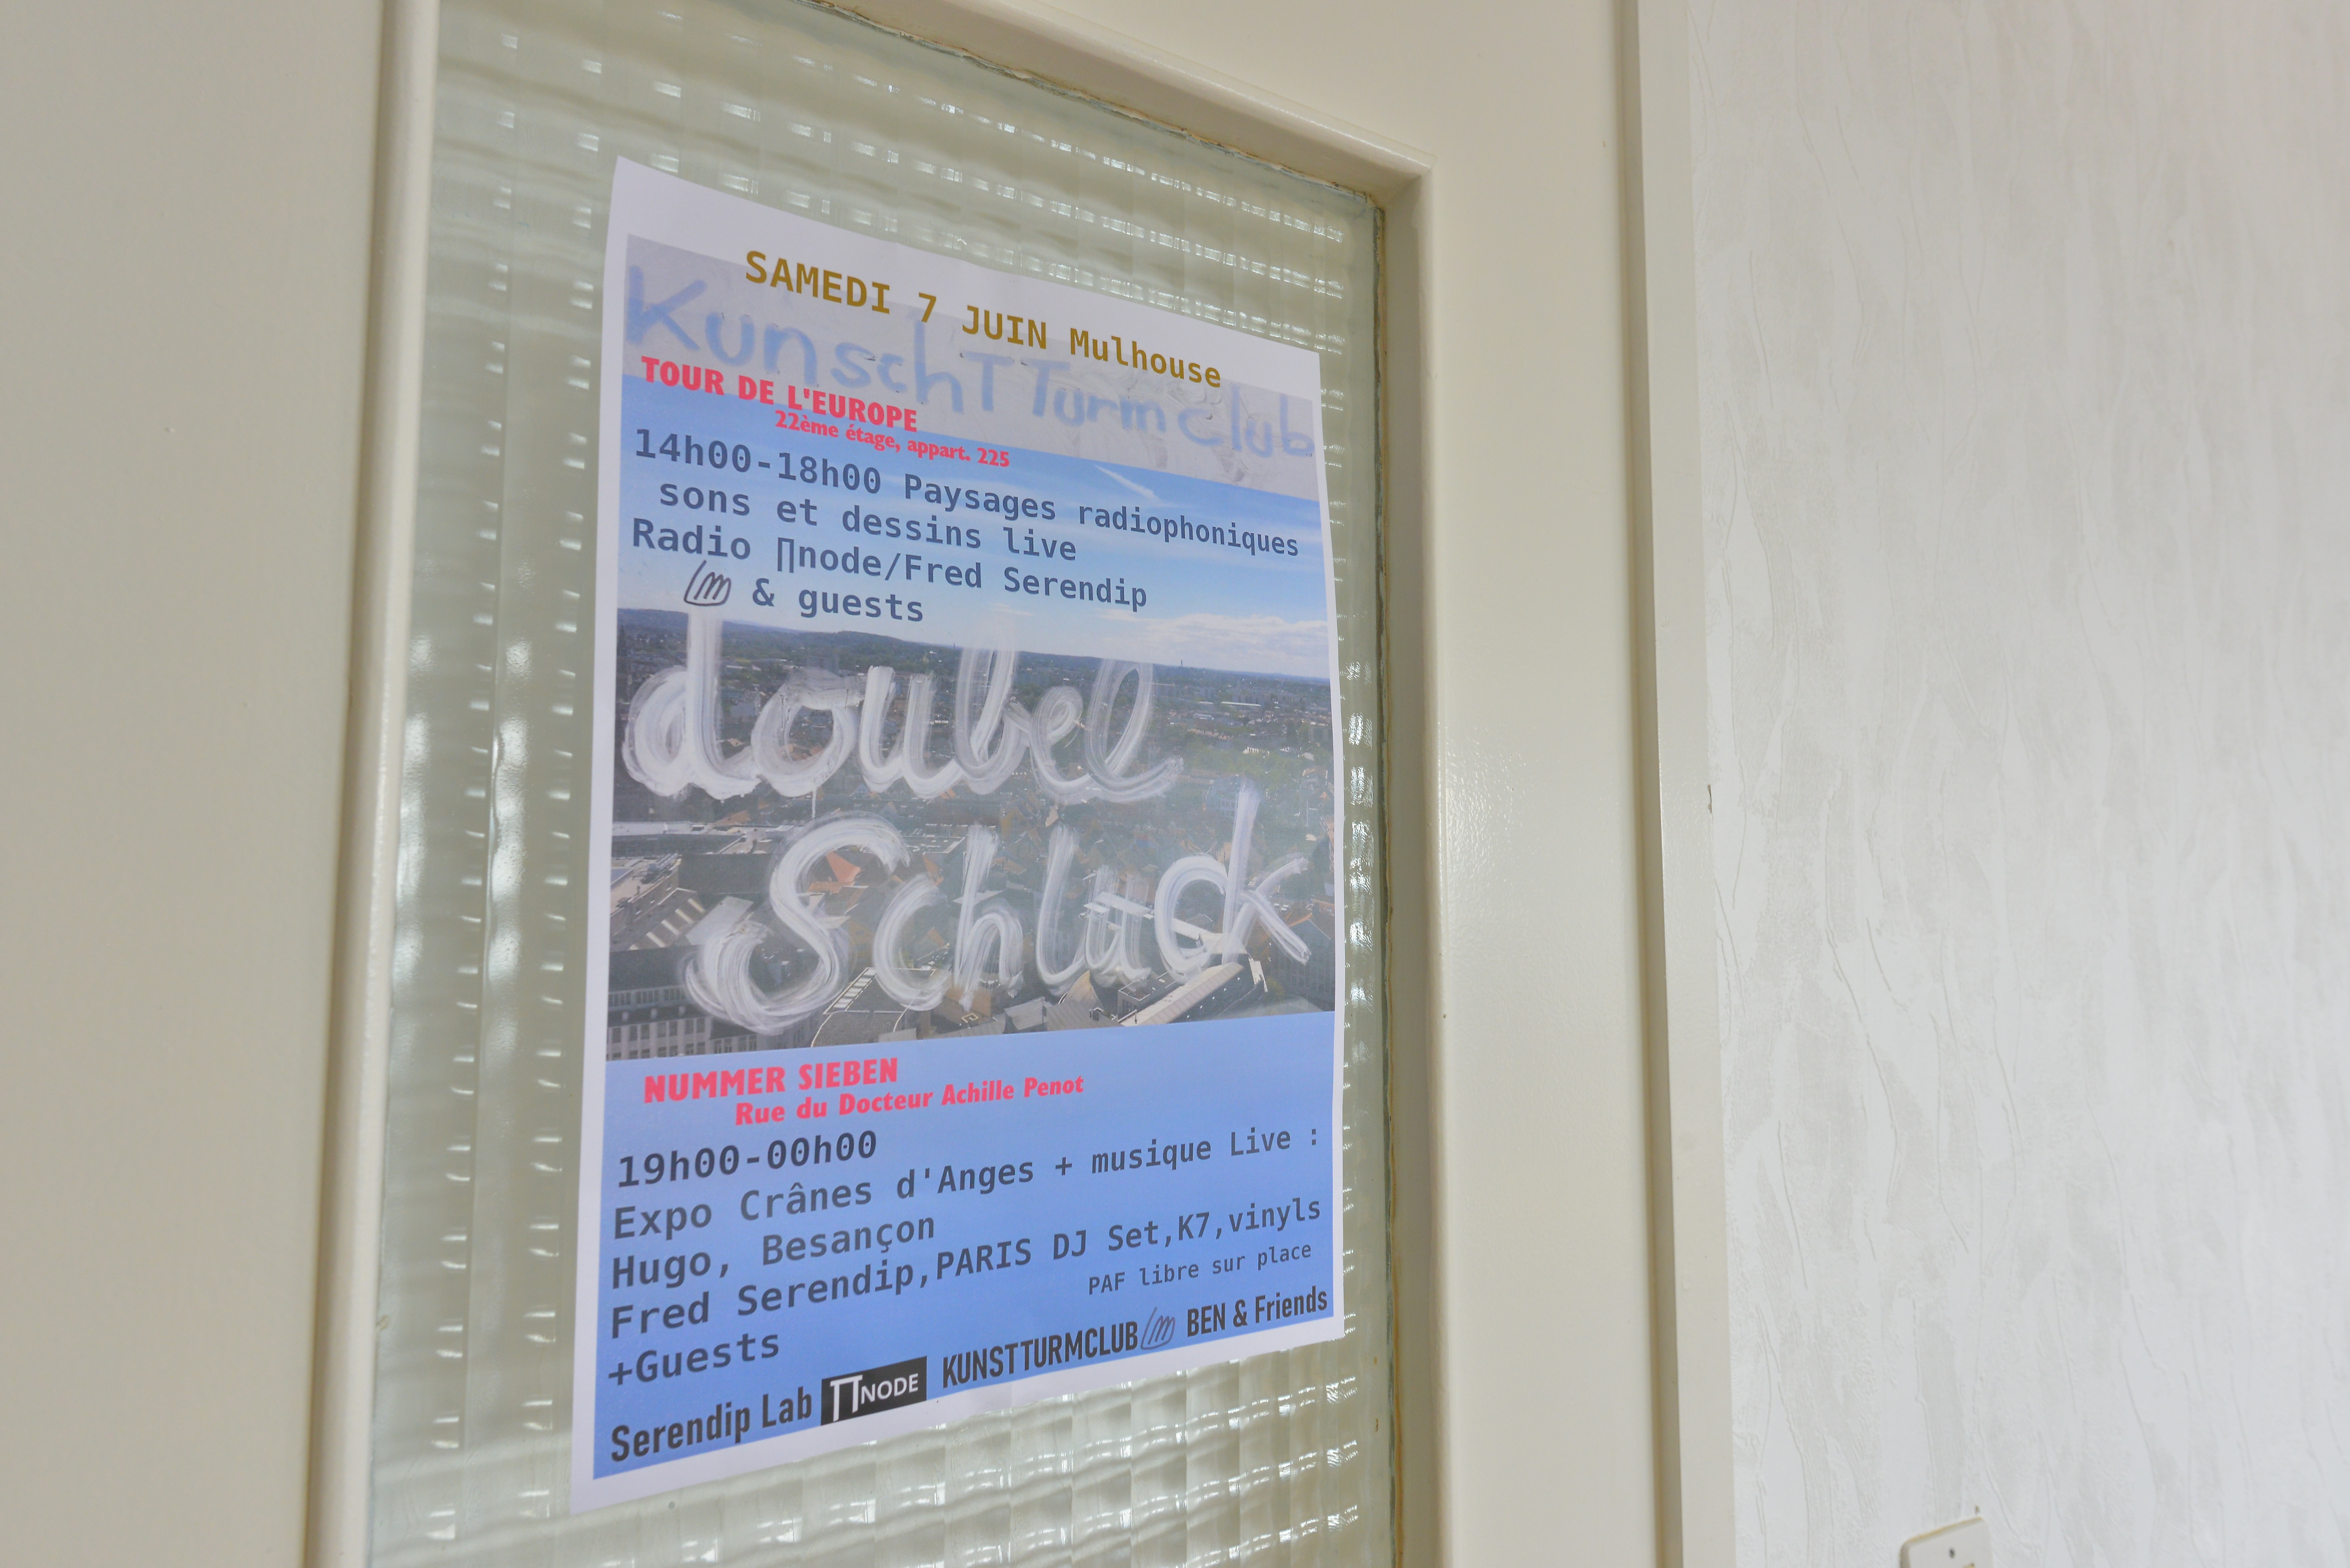 SAMEDI 7 JUIN Mulhouse
KunschTTurmclub
TOUR DE L'EUROPE
22ème étage, appart. 225
14h00-18h00 Paysages radiophoniques
sons et dessins live
Radio ∏node/Fred Serendip
& guests
doubel
Schluck
NUMMER SIEBEN
Rue du Docteur Achille Penot
19h00-00h00
Expo Crânes d'Anges + musique Live :
Hugo, Besançon
Fred Serendip,PARIS DJ Set,K7,vinyls
+Guests
PAF libre sur place
Serendip Lab ∏NODE KUNSTTURMCLUB BEN & Friends